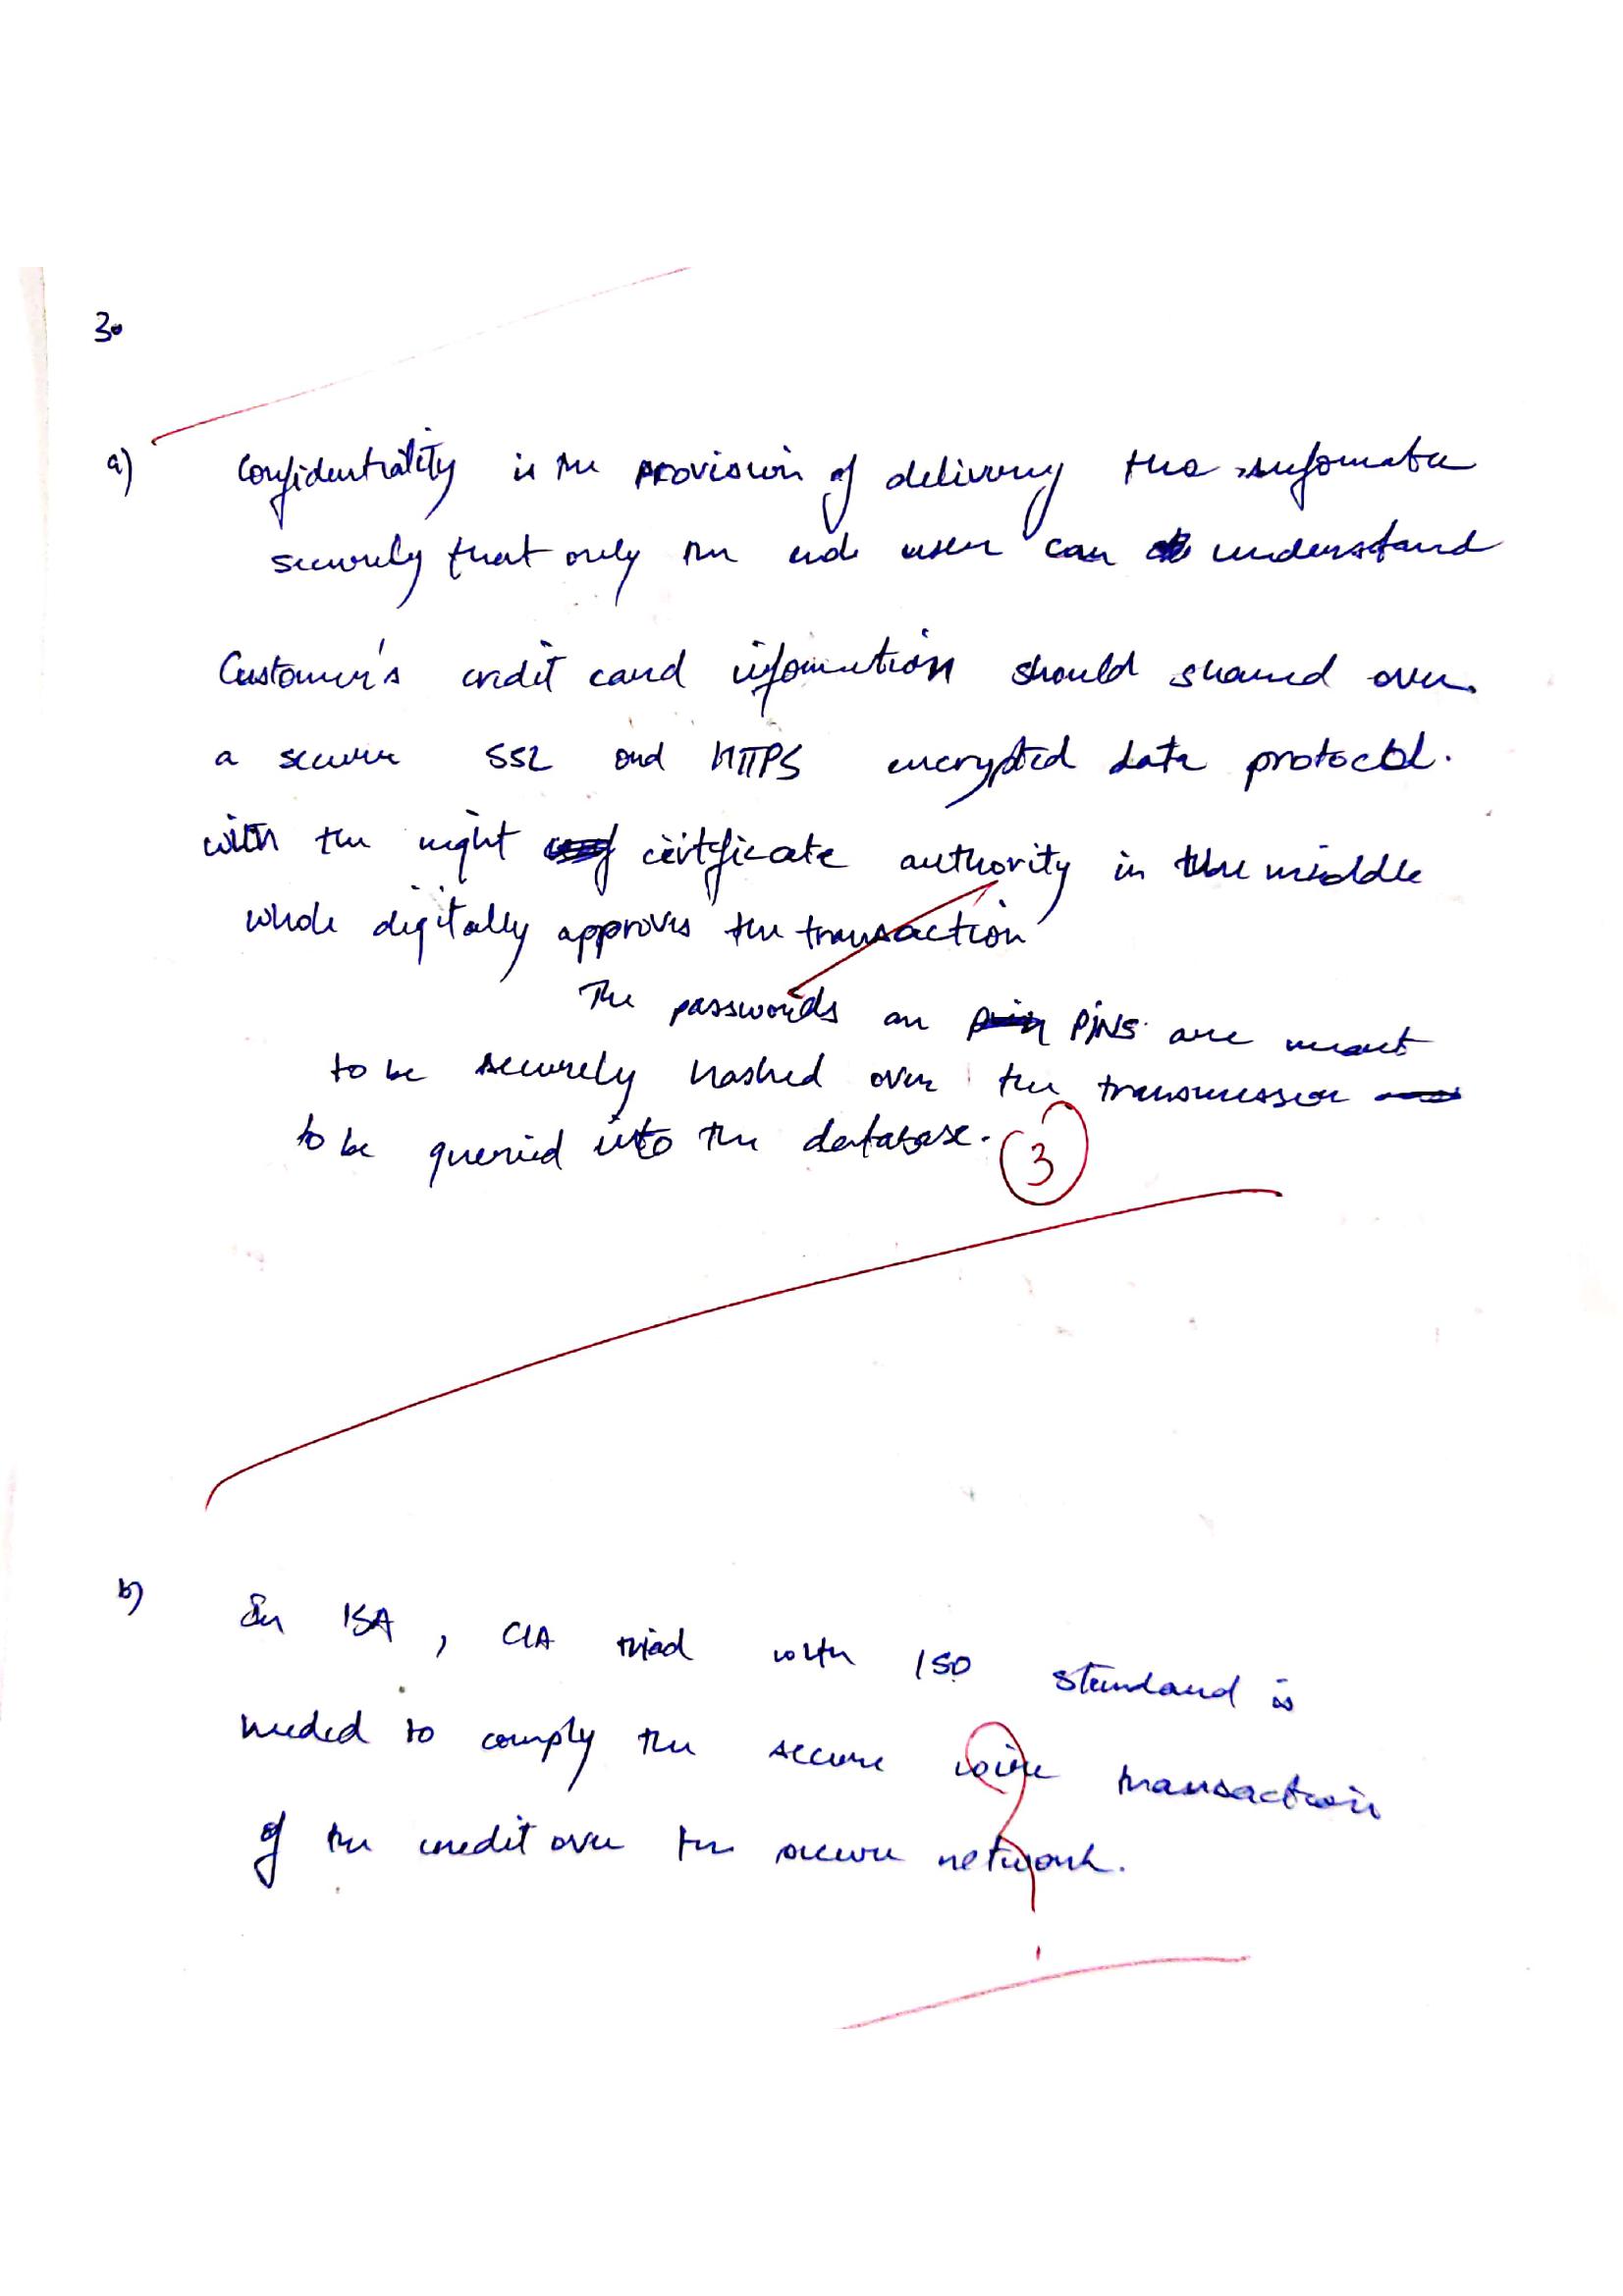 3.
a) Confidentiality is the provision of delivery the
securely that only the end user can understand
Customer's credit card information should shared over
a secure SSL and HTTPS encrypted data protocol.
with the right certificate authority in the middle
whole digitally approves the transaction
The passwords an PINS are meant
to be securely hashed over the transmission
to be queried into the database.
3
b) In ISA, CIA triad with ISO standard is
needed to comply the secure wire transaction
of the credit over the secure network.
?